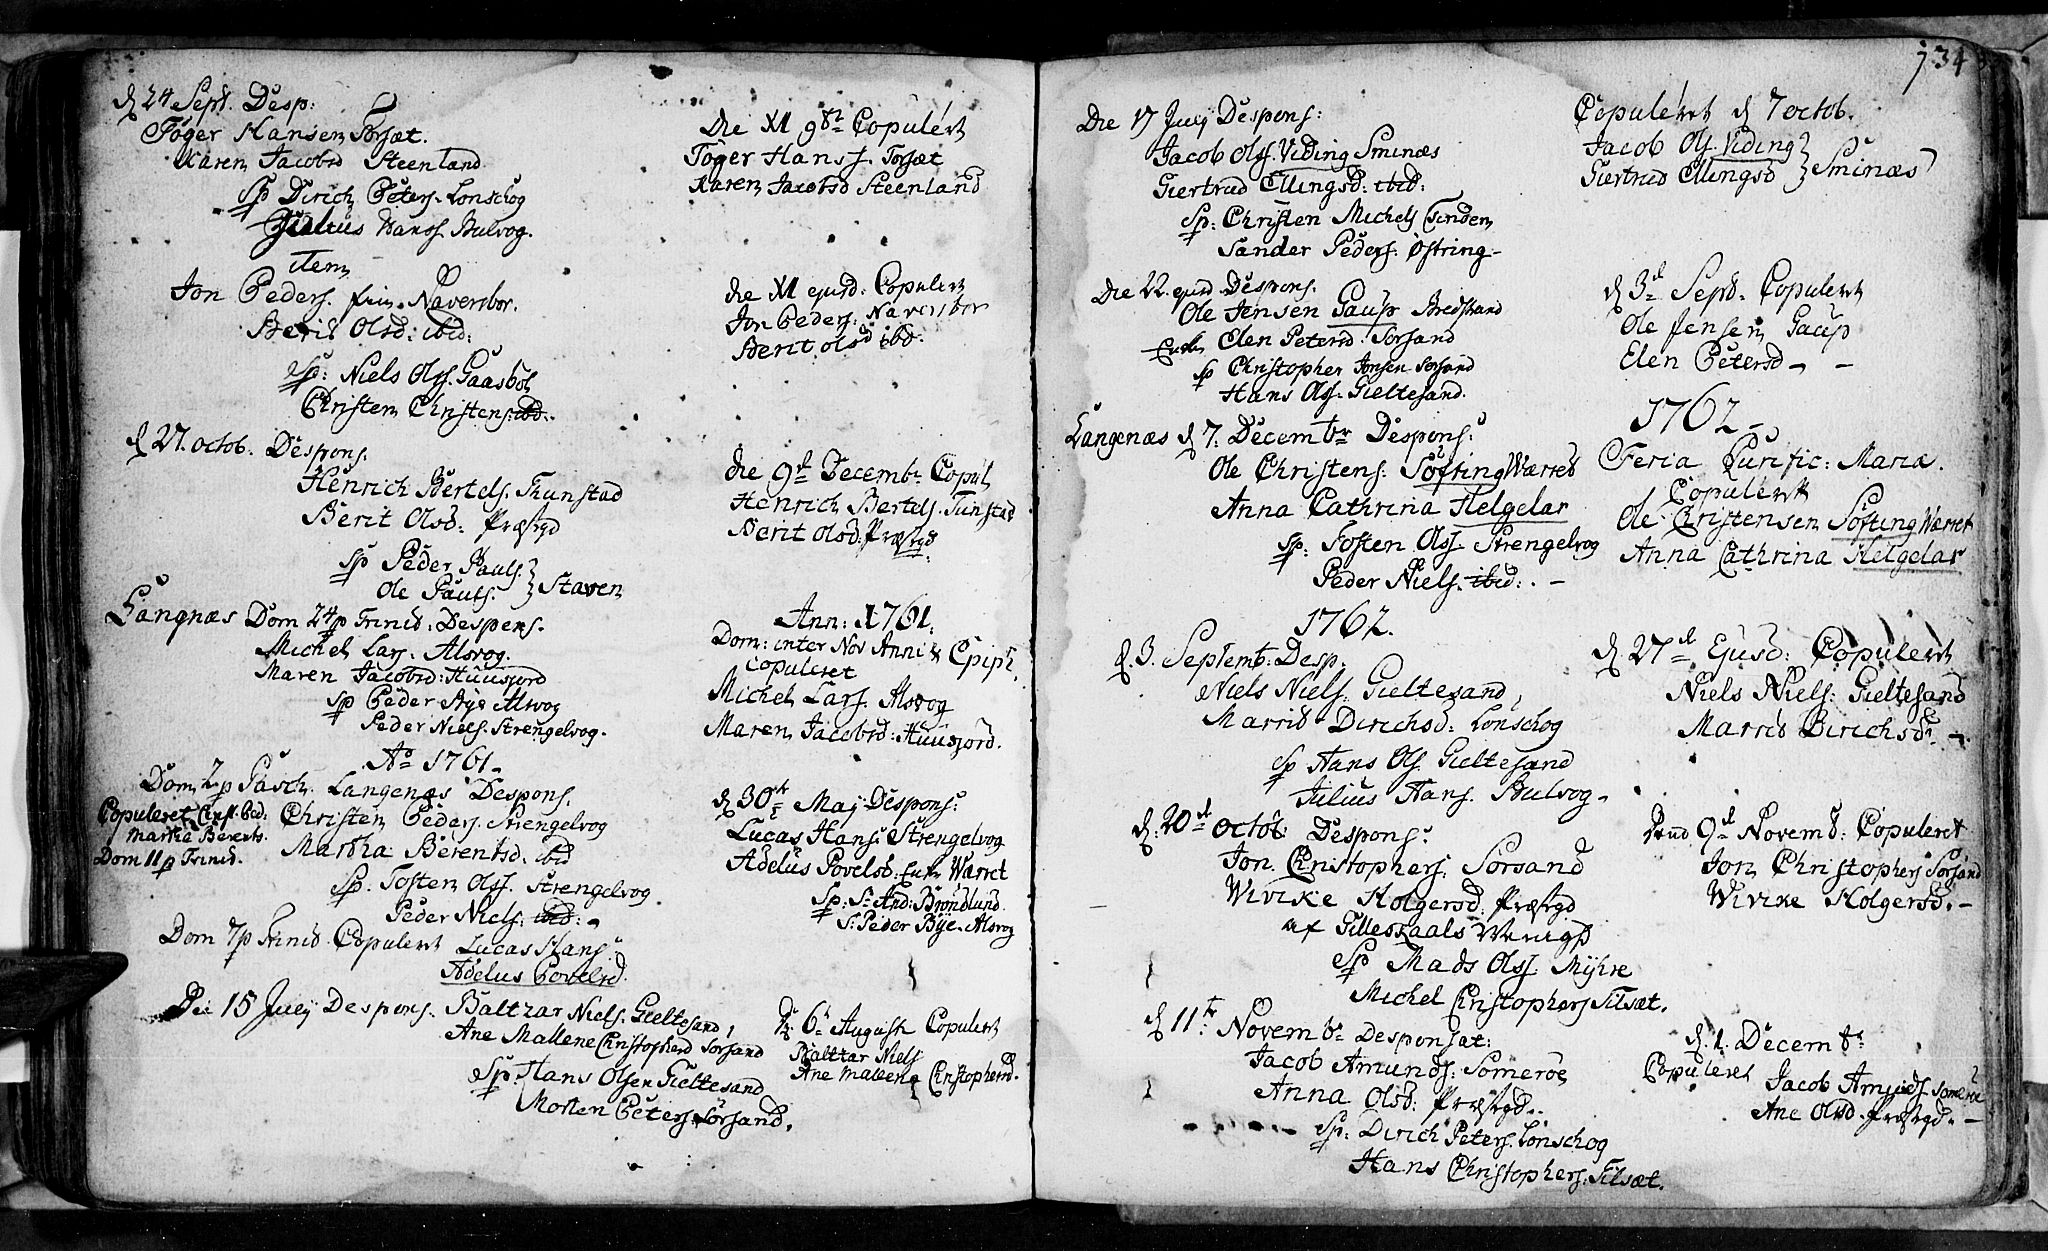 d 24 Sept. Desp:
Tøger Hansen Torsæt.
Karen Jacobsd Steenland
Sp Dirich Peters. Lonschog
Julius Hanss. Bulvog.
item
Jon Peders. Naversbor.
Berit Olsd: ibid:
Sp: Niels Olss. Gaasbøl
Christen Christens: ibd.
d 27. octob. Despons.
Henrich Bertels. Tunstad
Berit Olsd: Præstgd
Sp Peder Pauls.
Ole Pauls. } Staven
Langnæs Dom 24 p Trinit: Despons.
Michel Lars. Alsvog.
Maren Jacobsd: Huusjord
Sp Peder Bye Alsvog
Peder Niels. Strengelvog.
Ao 1761.
Dom 2 p Pasch. Langenæs Despons.
Christen Peders. Strengelvog
Martha Berentsd. ibid
Copuleret Christ. Ped:
Martha Berents.
Dom 11 p Trinit.
Sp: Tosten Olss. Strengelvog
Peder Niels. ibid: -
Dom 7 p Trinit. Copuleret Lucas Hans:
Adelus Povelsd.
Die 15 July Despons. Baltzar Niels. Gieltesand,
Ane Mallene Christophersd Sorsand
Sp: Hans Olsen Gieltesand
Morten Peters. Sørsand.
Die XI 9br Copulert
Tøger Hanss. Torsæt
Karen Jacobsd Steenland
die XI ejusd: Copulert
Jon Peders: Naversbor
Berit olsd ibd.
die 9d Decembr Copul
Henrich Bertels. Tunstad
Berit Olsd: Præstgd
Ann: 1761.
Dom: inter Nov Anni & Epiph.
copuleret
Michel Lars. Alsvog
Maren Jacobsd: Huusjord.
d 30t Maj Despons:
Lucas Hans: Strengelvog
Adelus Povelsd: Enke Wærret
Sp: Sr And: Brøndlund.
Sr Peder Bye. Alsvog
d 6t Augusti Copulert
Baltzar Niels
Ane Mallene Christophersd.
734
Die 17 July Despons:
Jacob Olss. Viding Sminæs
Giertrud Ellingsd: ibid:
Sp: Christen Michels Tinden
Sander Peders. Østring -
Die 22. ejusd Despons.
Ole Jensen Gaup Bredstrand
Enken Elen Petersd. Sorsand
Sp Christopher Jonsen Sorsand
Hans Olss. Gieltesand.
Langenæs d 7. Decembr Despons:
Ole Christens: Søfting Wærret
Anna Cathrina Helgelar
Sp: Tosten Olss. Strengelvog
Peder Niels. ibid: . -
1762.
d. 3. Septemb: Desp.
Niels Niels: Gieltesand,
Marrit Dirichsd: Lonschog
Sp Hans Ols. Gieltesand
Julius Hans. Bulvog -
d. 20d octob: Despons:
Jon Christophers. Sorsand
Wivike Holgersd: Præstgd
af Gilleskaals
Sp Mads Olss. Myhre
Michel Christophers Tilsæt.
d 11te Novembr Desponsat:
Jacob Amunds: Someroe
Anna Olsd: Præstgd.
Sp: Dirich Peters. Lonschog
Hans Christophers: Tilsæt.
Copuleret d 7 octob.
Jacob Ols. Viding
Giertrud Ellingsd } Sminæs
d 3d Sept. Copuleret
Ole Jensen Gaup
Elen Petersd - -
1762 -
Feria Purific: Mariæ.
Copuleret
Ole Christensen Søfting Wærret
Anna Cathrina Helgelar
d 27d Ejusd: Copuleret
Niels Niels: Gieltesand
Marrit Dirichsd: -
9d Novemb: Copuleret
Jon Christophers Sorsand
Wivike Holgersd. -
d. 1. Decembr
Copuleret Jacob Amunds Someroe
Ane Olsd. Præstgd. -